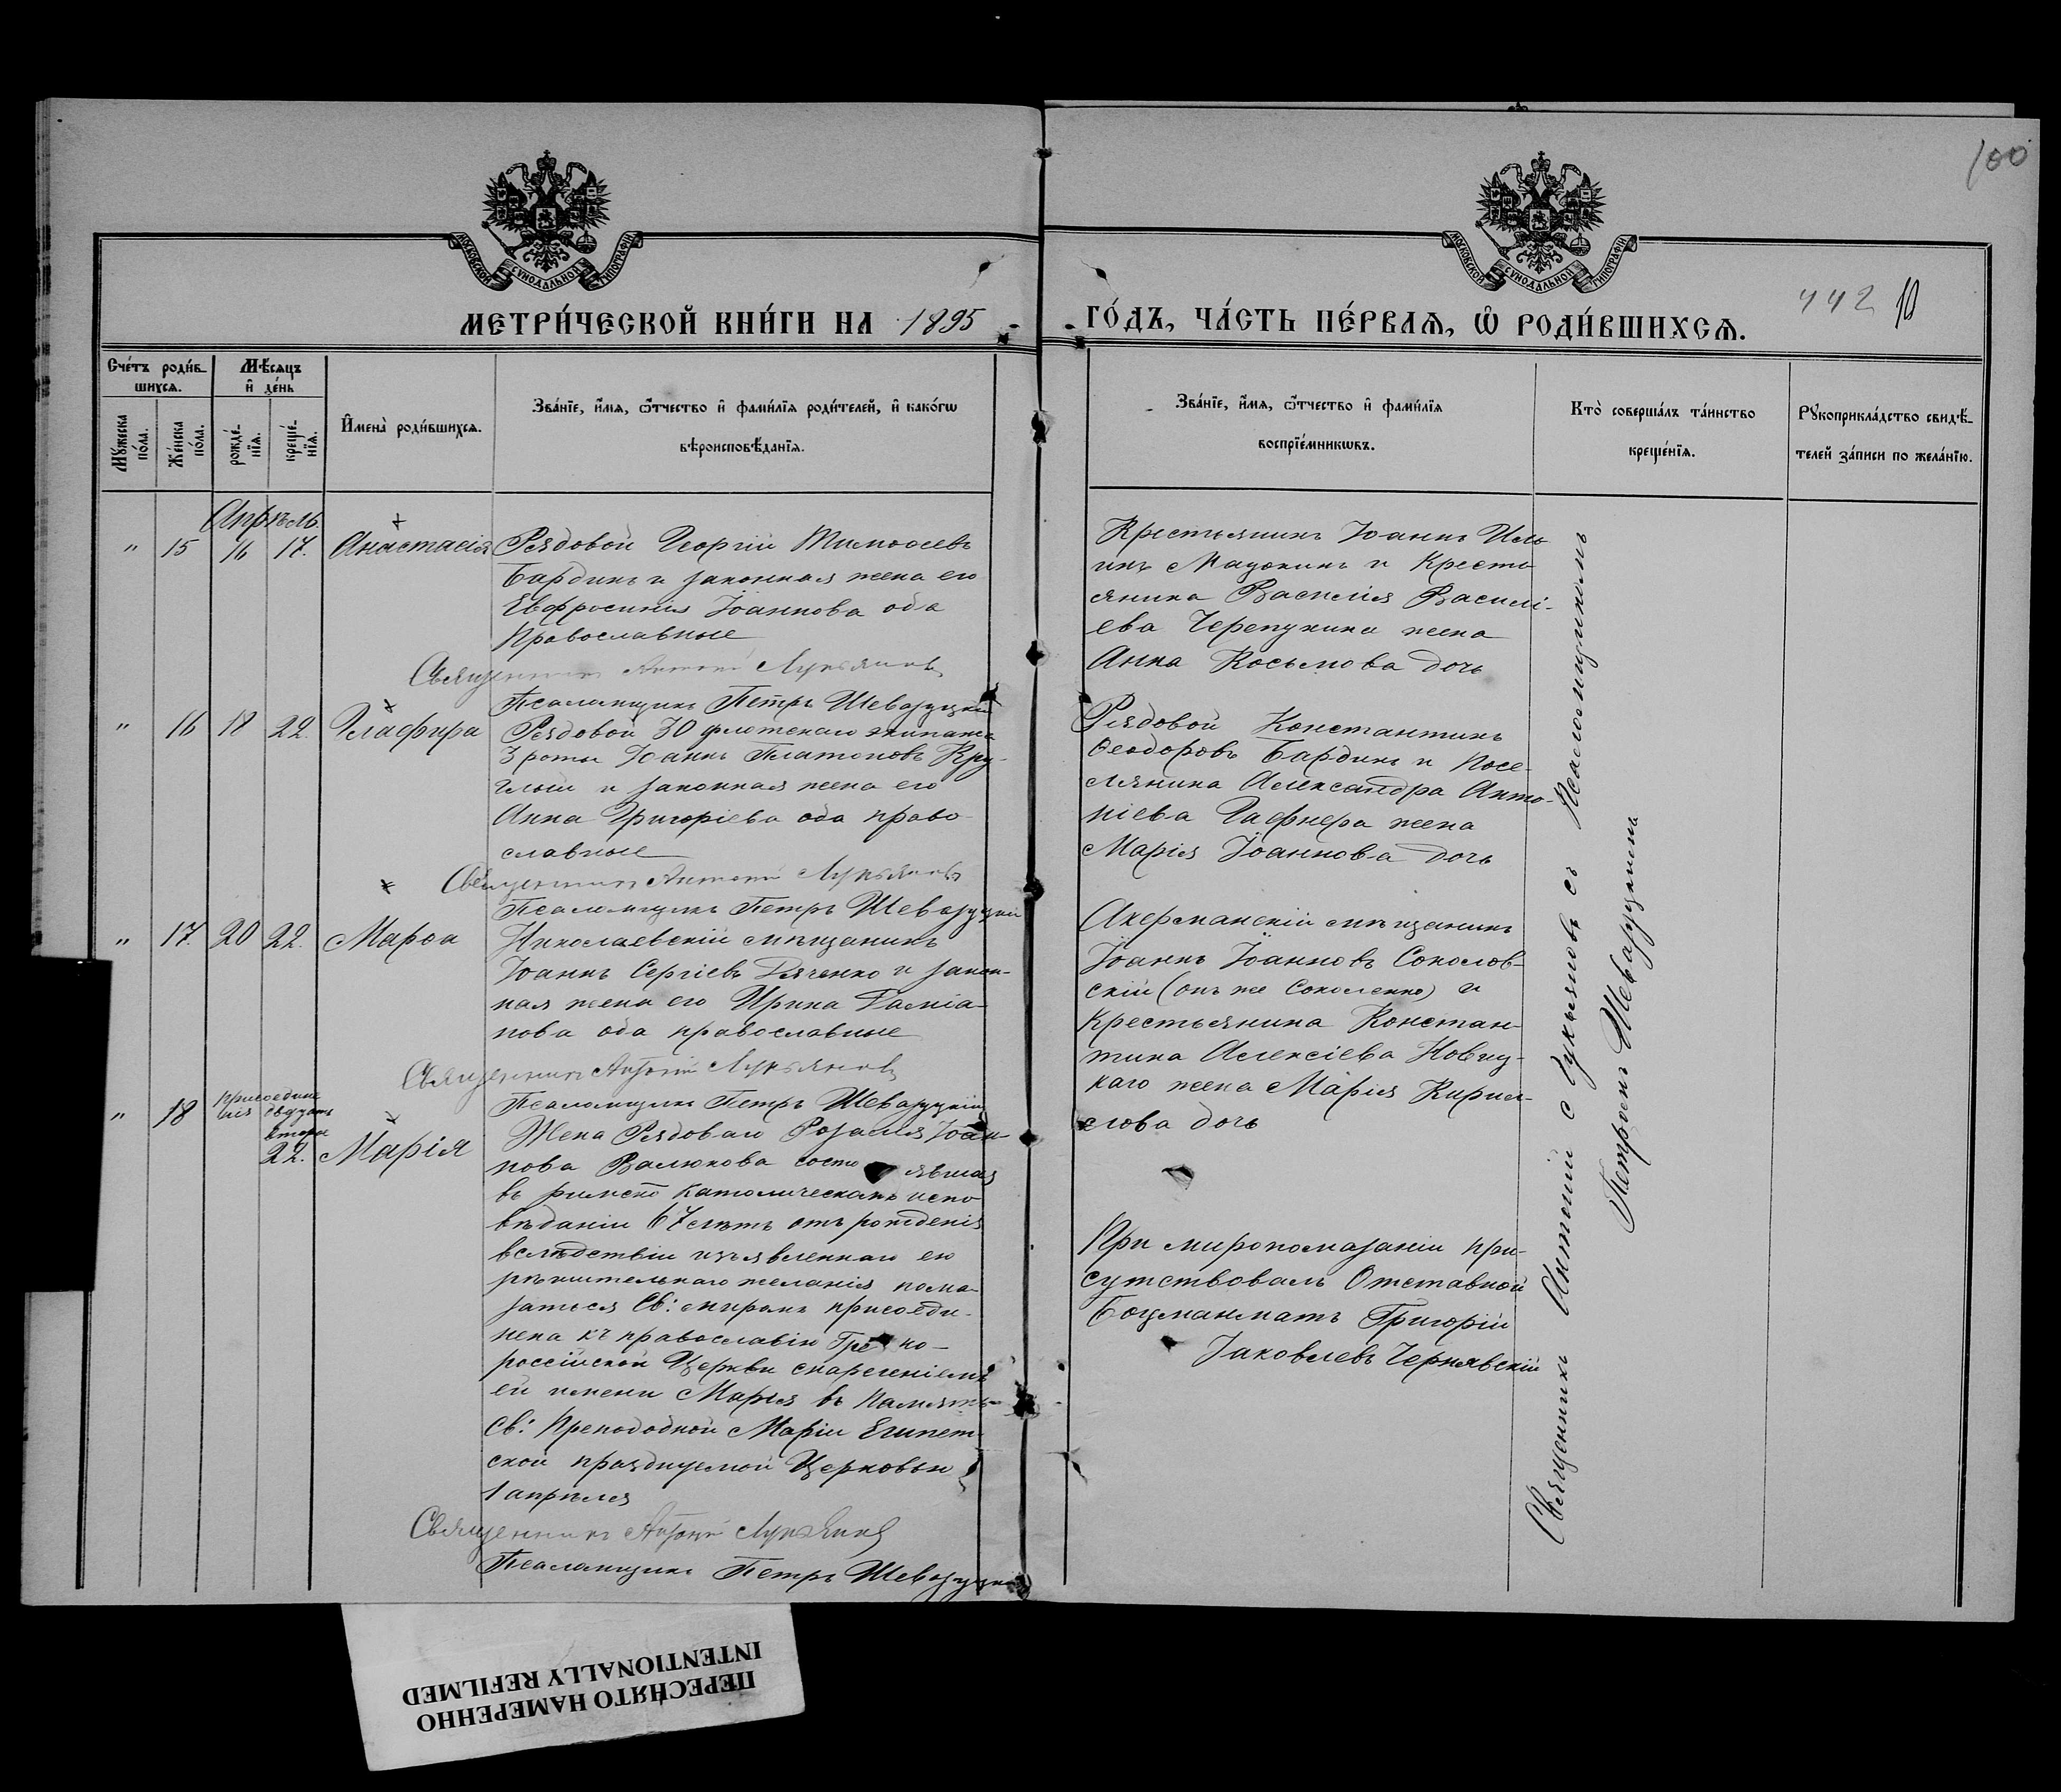 100
МОСКОВСКОЙ СУНОДАЛЬНОЙ ТИПОГРАФІИ
МОСКОВСКОЙ СУНОДАЛЬНОЙ ТИПОГРАФІИ
МЕТРИ́ЧЕСКОЙ КНИ́ГИ НА 1895
ГО́ДЪ, ЧА́СТЬ ПЕ́РВАѦ, Ѽ РОДИ́ВШИХСѦ.
442 10
Сче́тъ роди́в-
шихсѧ.
Мѣ́сѧцъ
и҆ де́нь
Мꙋ́жеска по́ла.
Же́нска по́ла.
рожде́-
нїѧ.
креще́-
нїѧ.
И҆мена̀ роди́вшихсѧ.
Зва́нїе, и҆́мѧ, ѻ҆́тчество и҆ фами́лїѧ роди́телей, и҆ како́гѡ
вѣроисповѣ́данїѧ.
Зва́нїе, и҆́мѧ, ѻ҆́тчество и҆ фами́лїѧ
воспрїе́мникѡвъ.
Кто̀ соверша́лъ та́инство
креще́нїѧ.
Рꙋкоприкла́дство свидѣ́-
телей за́писи по жела́нїю.
Апрѣль.
" 15 16 17. Анастасія
Рядовой Георгій Тимоѳеевъ
Бардинъ и законная жена его
Евфросинія Іоаннова оба
Православные
Священникъ Антоній Лукьяновъ
Псаломщикъ Петръ Шевазуцкій
Крестьянинъ Іоаннъ Иль-
инъ и Кресть
янина Василія Василі-
ева жена
Анна Косьмова дочь
" 16 18 22. Глафира
Рядовой 30 флотскаго экипажа
3 роты Іоаннъ Платоновъ Кру-
глый и законная жена его
Анна Григоріева оба право-
славные
Священникъ Антоній Лукьяновъ
Псаломщикъ Петръ Шевазуцкій
Рядовой Константинъ
Ѳеодоровъ Бардинъ и Посе-
лянина Александра Анто-
ніева Гафнера жена
Марія Іоаннова дочь
" 17. 20 22. Марѳа
Николаевскій мѣщанинъ
Іоаннъ Сергіевъ Дяченко и закон-
ная жена его Ирина Даміа-
нова оба православные
Священникъ Антоній Лукьяновъ
Псаломщикъ Петръ Шевазуцкій
Акерманскій мѣщанинъ
Іоаннъ Іоанновъ Соколов-
скій (онъ же Соколенко) и
Крестьянина Констан-
тина Алексіева Новиц-
каго жена Марія Кирил-
лова дочь
" 18 присоедине
нія двадцать
втора
22. Марія
Жена Рядоваго Розалія Іоан-
нова Валюкова состоявшая
въ римско католическомъ испо
вѣданіи 67 лѣтъ отъ рожденія
вслѣдствіи изъявленнаго ею
рѣшительнаго желанія пома-
заться Св: мѵромъ присоеди-
нена къ православію Греко-
россійской Церкви с нареченіемъ
ей имени Марія въ память
Св: Преподобной Маріи Египет-
ской празднуемой Церковью
1 апрѣля
Священникъ Антоній Лукьяновъ
Псаломщикъ Петръ Шевазуцкій
При миропомазаніи при-
сутствовалъ Отставной
Боцманматъ Григорій
Іаковлевъ Чернявскій
Священникъ Антоній Лукьяновъ съ Псаломщикомъ
Петромъ Шевазуцкимъ
ПЕРЕСНЯТО НАМЕРЕННО
INTENTIONALLY REFILMED